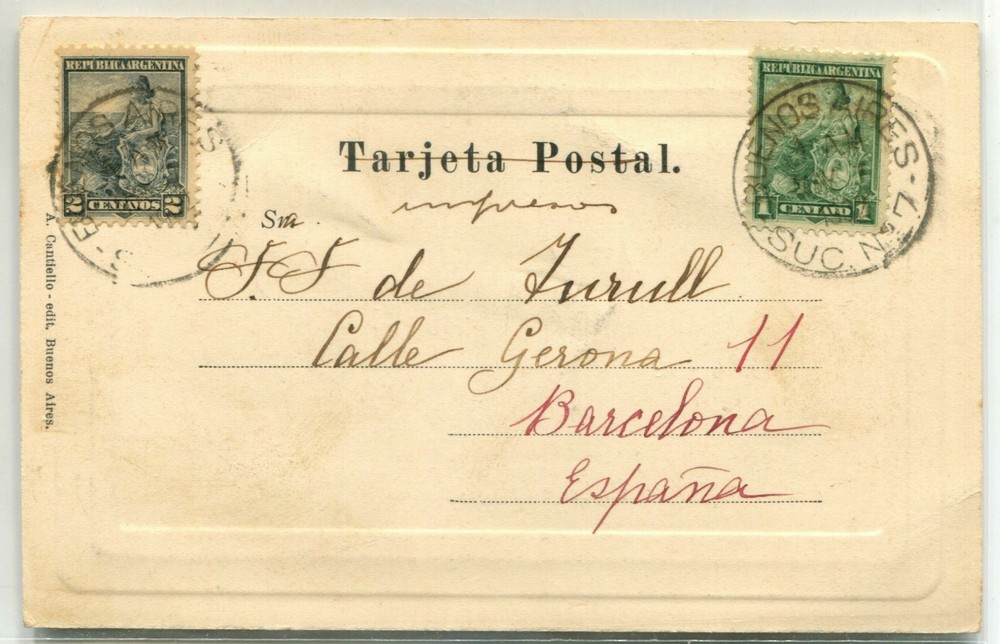 REPÚBLICA ARGENTINA
2 CENTAVOS 2
REPÚBLICA ARGENTINA
1 CENTAVO 1
BUENOS AIRES
SUC. Nº
Tarjeta Postal.
impresos
Sra.
S. S de Turull
Calle Gerona 11
Barcelona
España
A. Cantiello - edit. Buenos Aires.